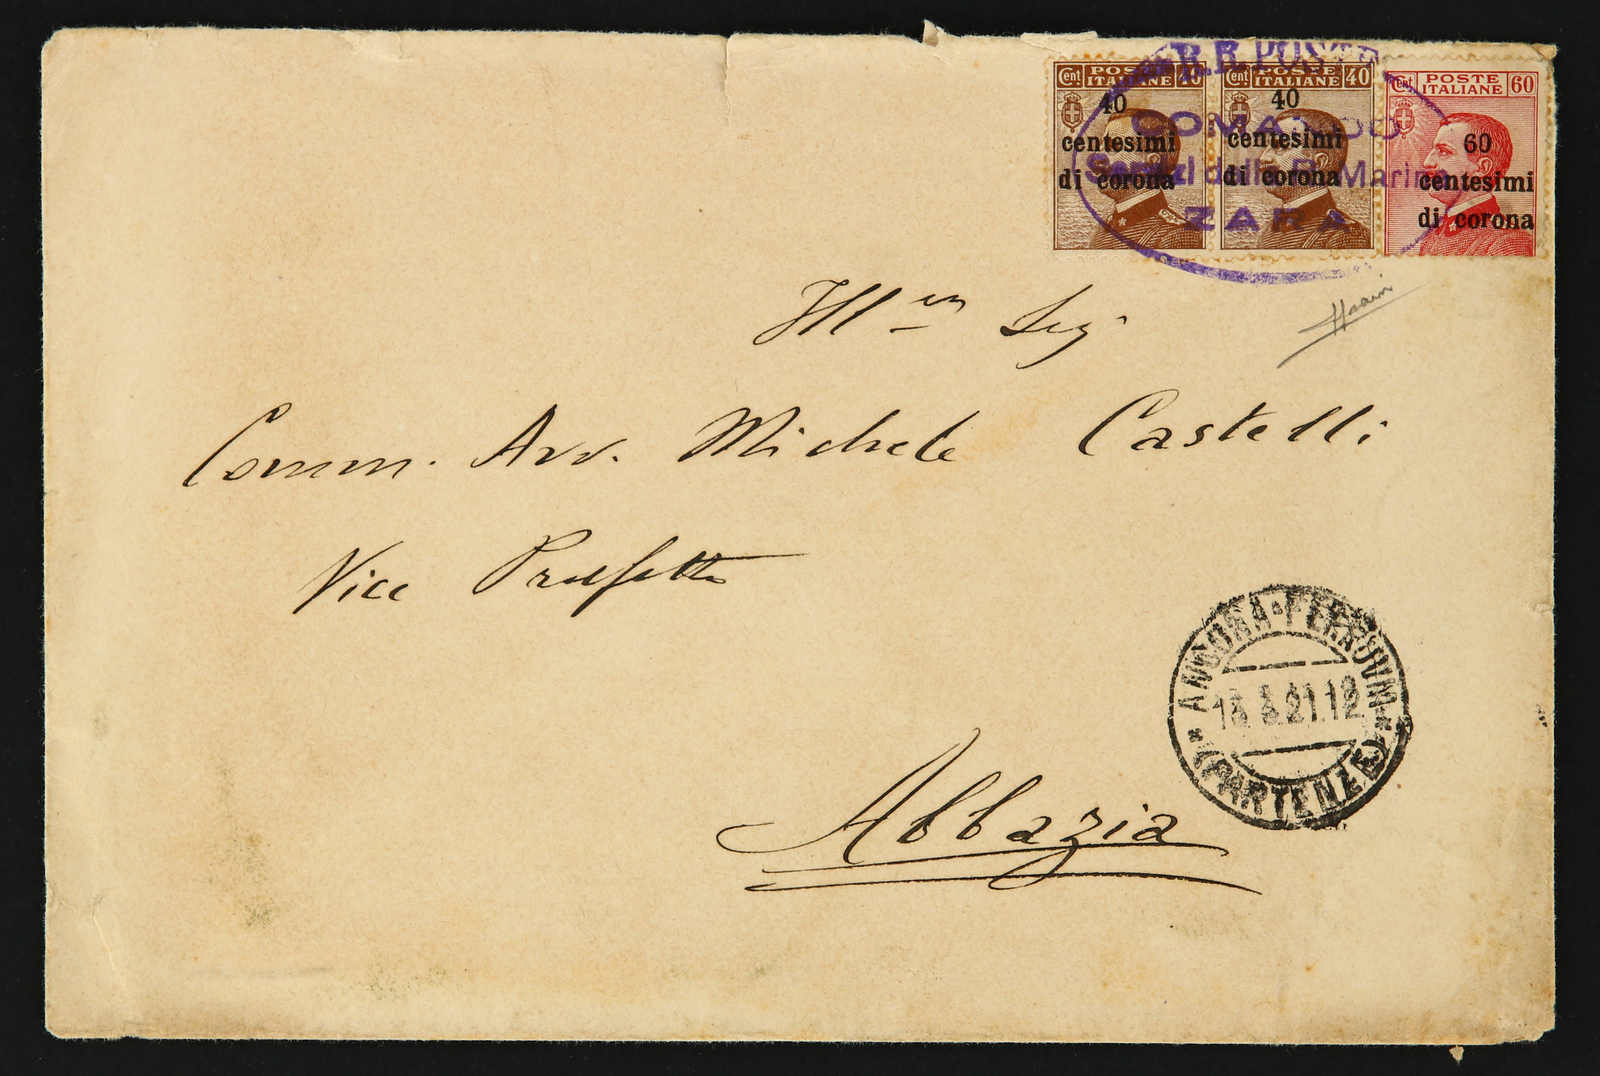 Cent POSTE ITALIANE 40
40
centesimi
di corona
Cent POSTE ITALIANE 40
40
centesimi
di corona
Cent POSTE ITALIANE 60
60
centesimi
di corona
R.R. POSTE
COMANDO
Servizi della R. Marina
ZARA
Ill.mo Sig.
Comm. Avv. Michele Castelli
Vice Prefetto
Abbazia
ANCONA·FERROVIA
21.12
(PARTENZE)